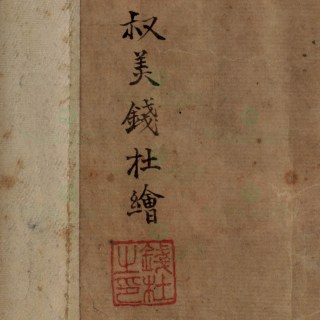 叔美錢杜繪
錢杜之印